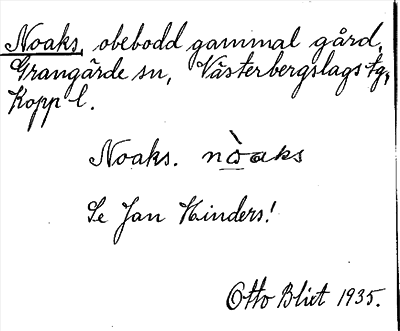 Noaks, obebodd gammal gård,
Grangärde sn, Västerbergslags tg,
Kopp l.
Noaks. nò̲aks
Se Jan Hinders!
Otto Blixt 1935.